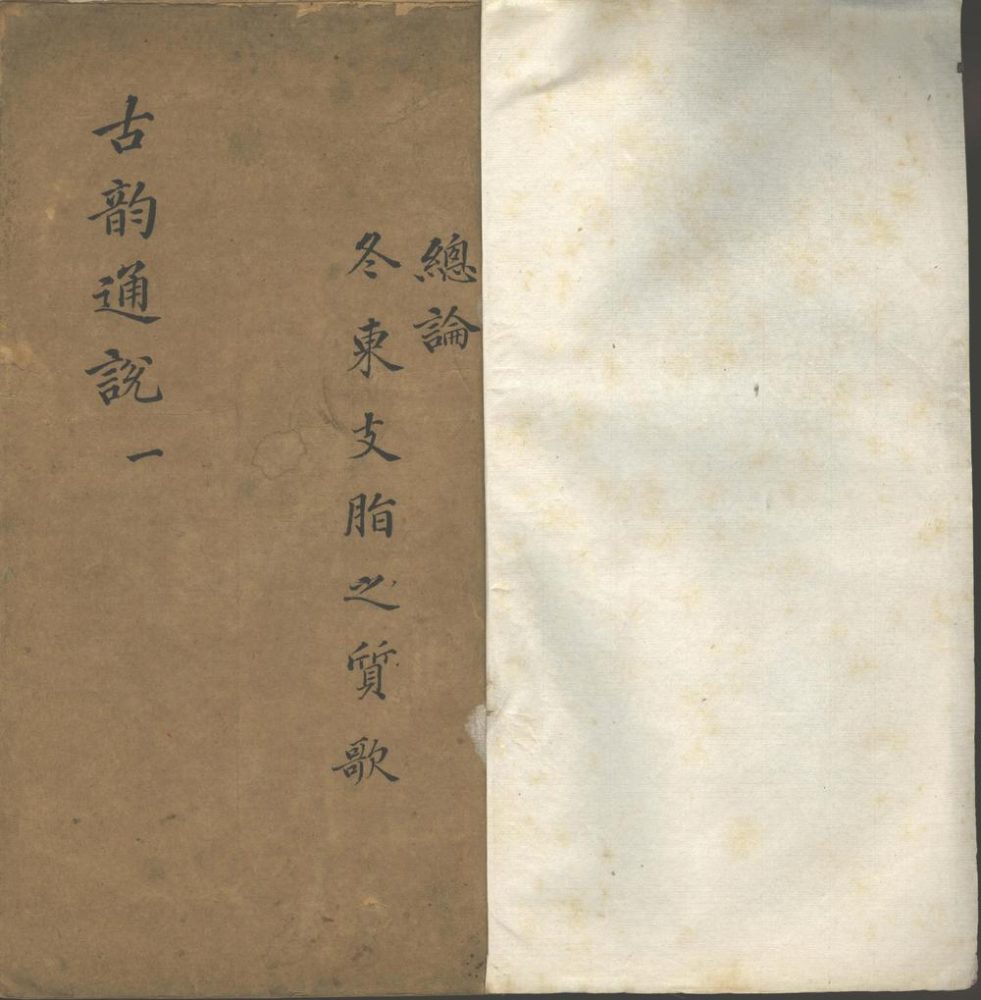 總論
冬東支脂之質歌
古韵通説一